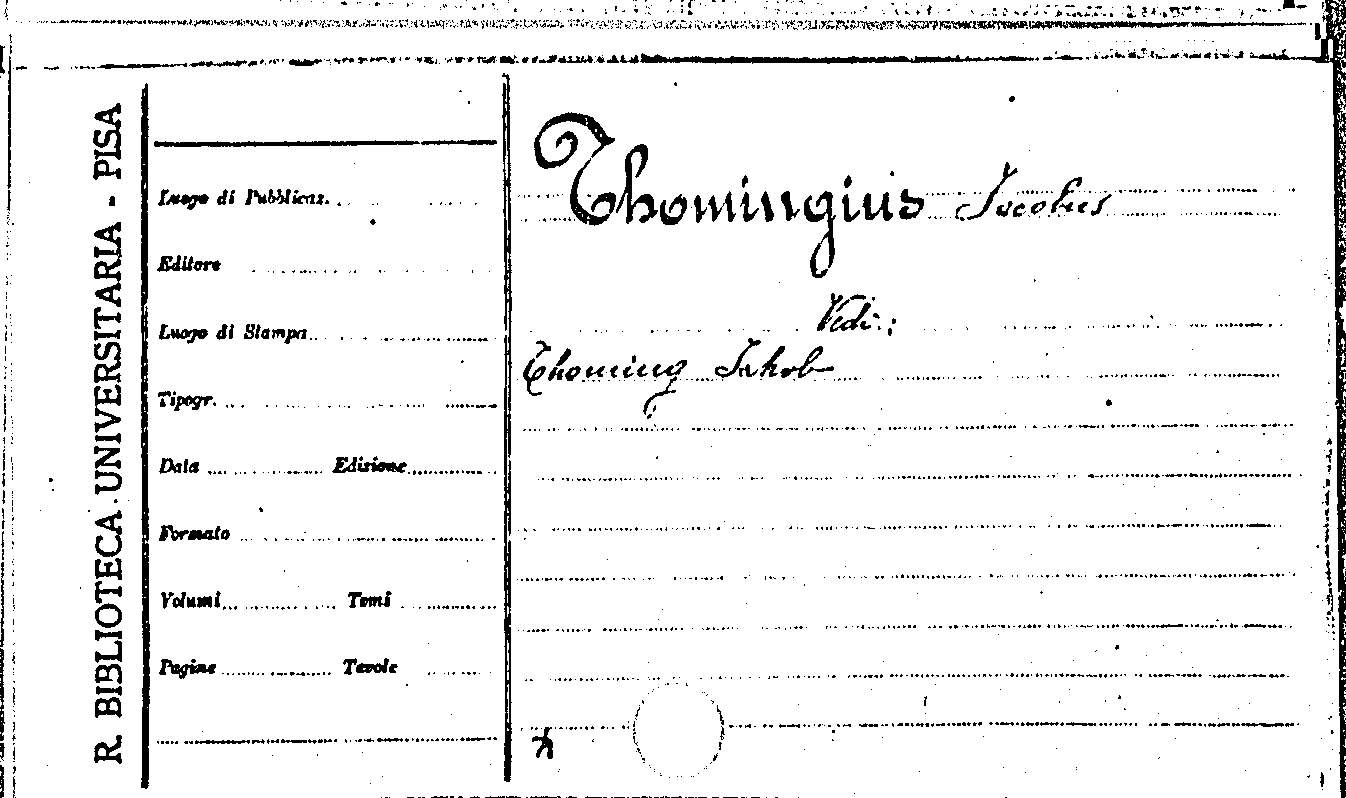 R. BIBLIOTECA UNIVERSITARIA - PISA
Luogo di Pubblicaz.
Editore
Luogo di Stampa
Tipogr.
Data Edizione
Formato
Volumi Tomi
Pagine Tavole
Thomingius Jacobus
Vedi:
Thoming Jakob